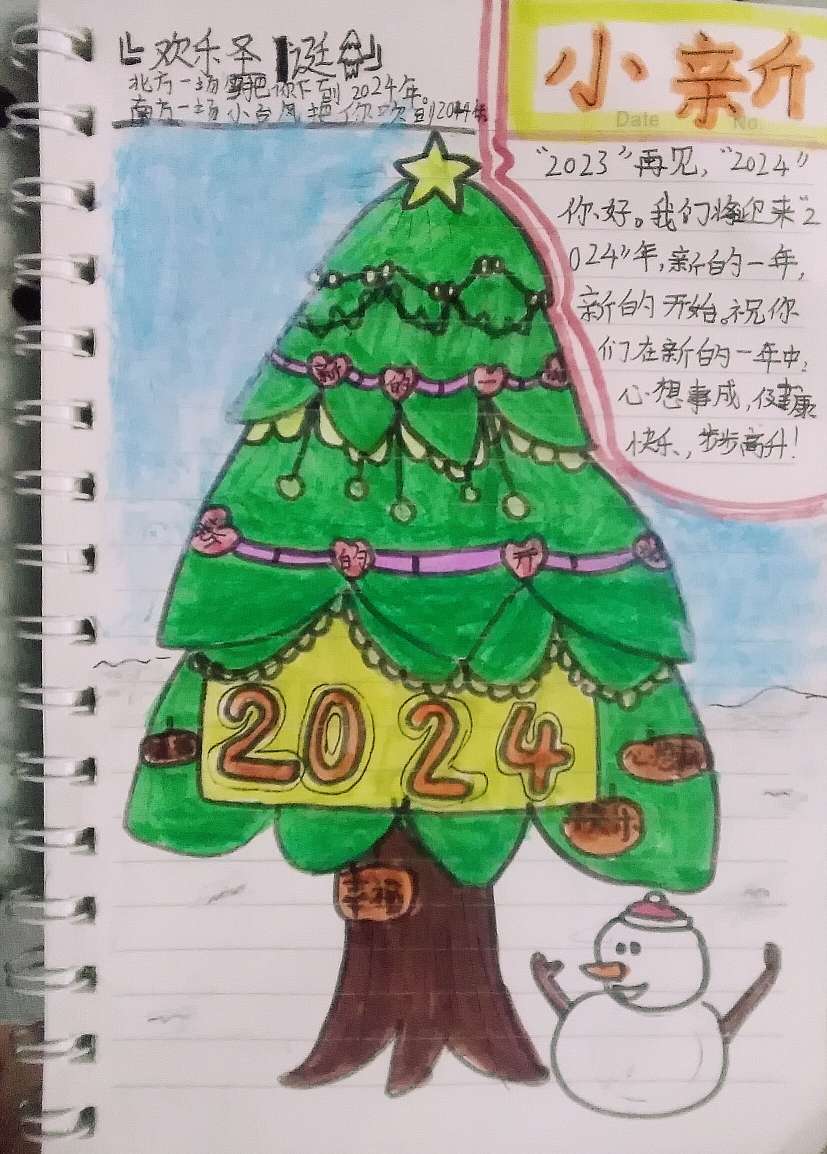 『欢乐圣诞』
北方一场雪把你下到2024年。
南方一场小台风把你吹到2024年
小新
Date
No.
"2023"再见，"2024"
你好。我们将迎来"2
024"年，新的一年，
新的开始。祝你
们在新的一年中，
心想事成，健康
快乐，步步高升！
新 的 一 年
的 开
2024
快乐
幸福